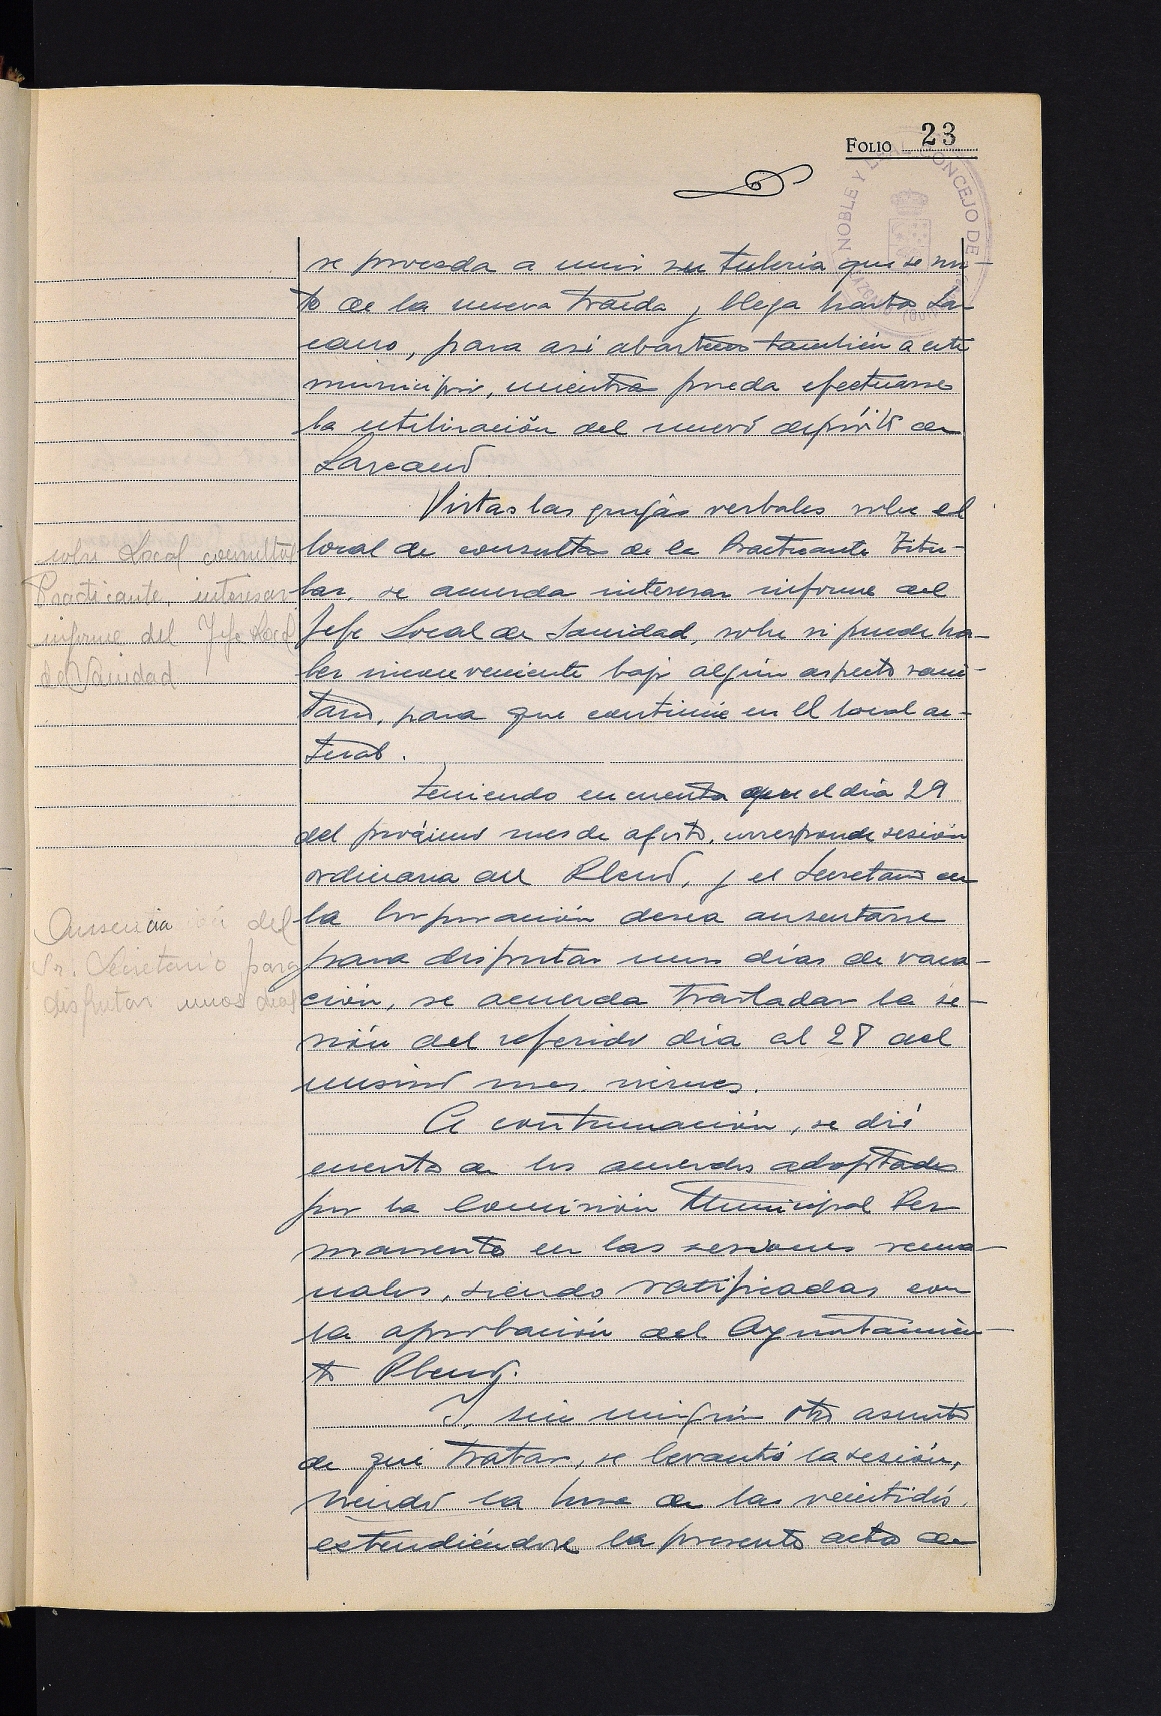 FOLIO 23
NOBLE Y LEAL CONCEJO DE
se proceda a unir su tubería que se
to de la nueva traída y llega hasta Laz-
cano, para así abastecer también a este
municipio, mientras pueda efectuarse
la utilización del nuevo depósito de
Lazcano
Vistas las quejas verbales sobre el
local de consulta de la Practicante Titu-
lar, se acuerda interesar informe del
Jefe Local de Sanidad, sobre si puede ha-
ber inconveniente bajo algún aspecto sani-
tario, para que continúe en el local ac-
tual.
sobre Local consulta
Practicante, interesar
informe del Jefe Local
de Sanidad
Teniendo en cuenta que el día 29
del próximo mes de agosto, corresponde sesión
ordinaria del Pleno, y el Secretario de
la Corporación desea ausentarse
para disfrutar unos días de vaca-
ción, se acuerda trasladar la se-
sión del referido día al 28 del
mismo mes, viernes.
Ausencia del
Sr. Secretario para
disfrutar unos días
A continuación, se dió
cuenta de los acuerdos adoptados
por la Comisión Municipal Per
manente en las sesiones sema-
nales, siendo ratificadas con
la aprobación del Ayuntamien-
to Pleno.
Y, sin ningún otro asunto
de qué tratar, se levantó la sesión,
siendo la hora de las veintidós,
extendiéndose la presente acta de